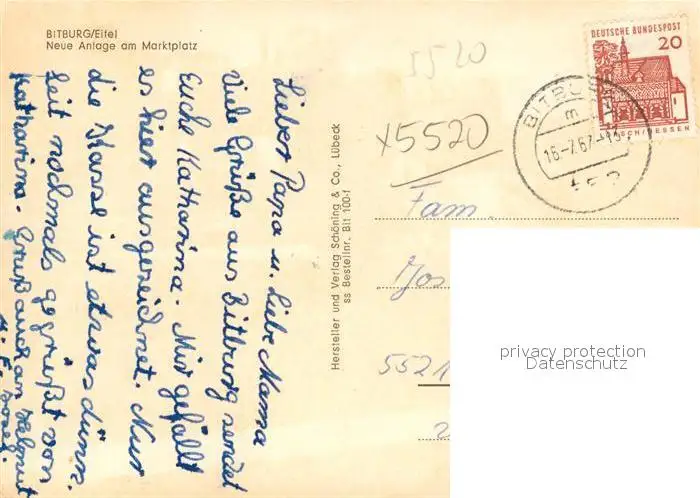 BITBURG/Eifel
Neue Anlage am Marktplatz
Lieber Papa u. Liebe Mama
Viele Grüße aus Bitburg sendet
Euche Katharina. Mir gefällt
es hier ausgezeichnet. Nur
die Kasse ist etwas dünn.
Seit nochmals gegrüßt von
Katharina. Gruß auch an Helmut
Hersteller und Verlag Schöning & Co., Lübeck
ss Bestellnr. Bit 100-f
5520
x5520
DEUTSCHE BUNDESPOST
20
LORSCH/HESSEN
BITBURG
16-7.67
Fam.
Jos
5521
privacy protection
Datenschutz